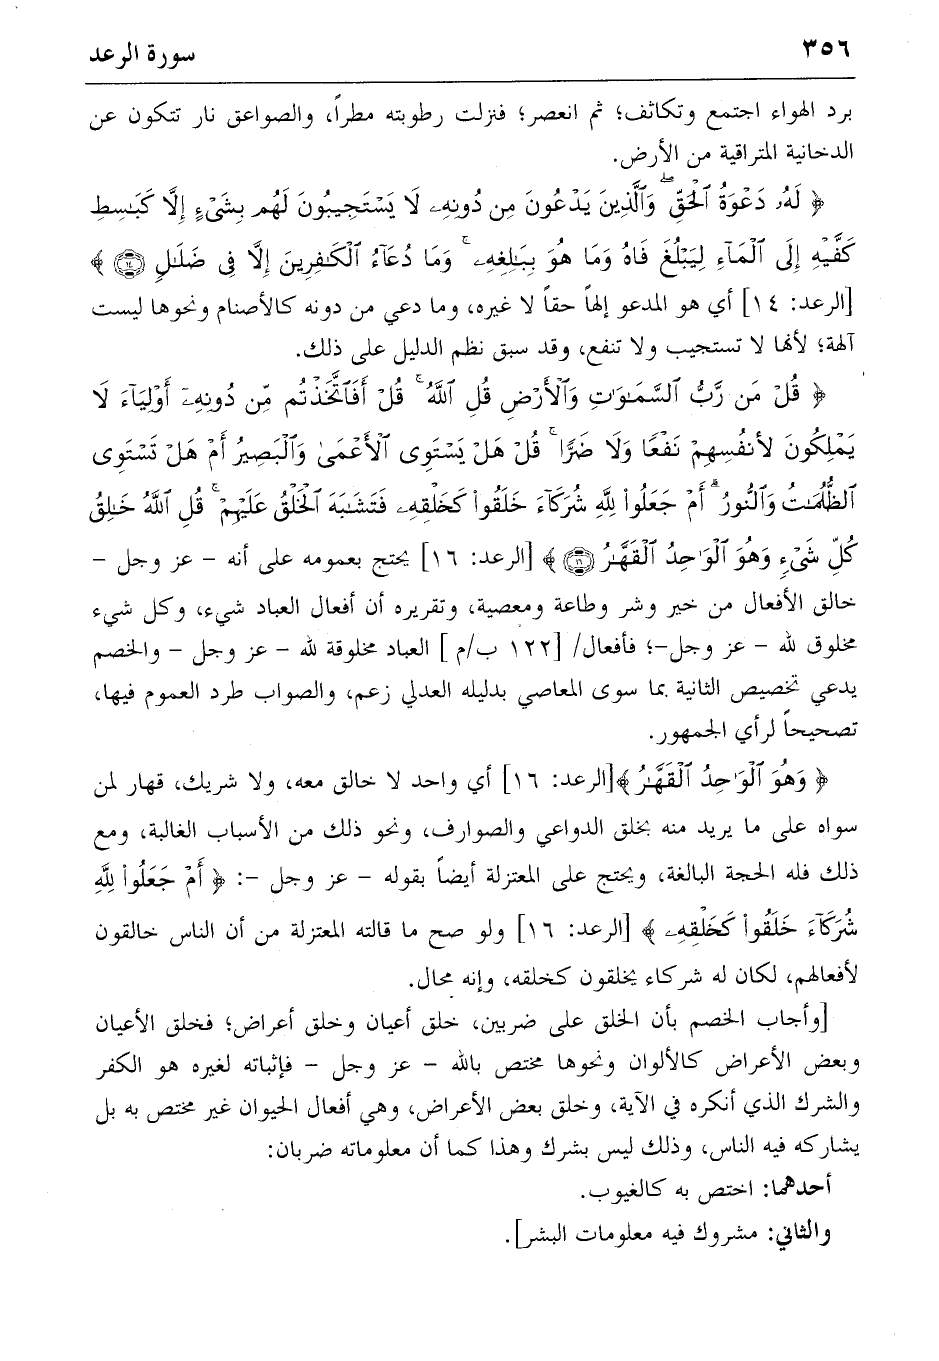 ٣٥٦ سورة الرعد
برد الهواء اجتمع وتكاثف؛ ثم انعصر؛ فنزلت رطوبته مطراً، والصواعق نار تتكون عن
الدخانية المتراقية من الأرض.
﴿ لَهُۥ دَعْوَةُ ٱلْحَقِّ ۖ وَٱلَّذِينَ يَدْعُونَ مِن دُونِهِۦ لَا يَسْتَجِيبُونَ لَهُم بِشَىْءٍ إِلَّا كَبَـٰسِطِ
كَفَّيْهِ إِلَى ٱلْمَآءِ لِيَبْلُغَ فَاهُ وَمَا هُوَ بِبَـٰلِغِهِۦ ۚ وَمَا دُعَآءُ ٱلْكَـٰفِرِينَ إِلَّا فِى ضَلَـٰلٍ ١٤ ﴾
[الرعد: ١٤] أي هو المدعو إلهاً حقاً لا غيره، وما دعي من دونه كالأصنام ونحوها ليست
آلهة؛ لأنها لا تستجيب ولا تنفع، وقد سبق نظم الدليل على ذلك.
﴿ قُلْ مَن رَّبُّ ٱلسَّمَـٰوَٰتِ وَٱلْأَرْضِ قُلِ ٱللَّهُ ۚ قُلْ أَفَٱتَّخَذْتُم مِّن دُونِهِۦٓ أَوْلِيَآءَ لَا
يَمْلِكُونَ لِأَنفُسِهِمْ نَفْعًا وَلَا ضَرًّا ۚ قُلْ هَلْ يَسْتَوِى ٱلْأَعْمَىٰ وَٱلْبَصِيرُ أَمْ هَلْ تَسْتَوِى
ٱلظُّلُمَـٰتُ وَٱلنُّورُ ۗ أَمْ جَعَلُوا۟ لِلَّهِ شُرَكَآءَ خَلَقُوا۟ كَخَلْقِهِۦ فَتَشَـٰبَهَ ٱلْخَلْقُ عَلَيْهِمْ ۚ قُلِ ٱللَّهُ خَـٰلِقُ
كُلِّ شَىْءٍ وَهُوَ ٱلْوَٰحِدُ ٱلْقَهَّـٰرُ ١٦ ﴾ [الرعد: ١٦] يحتج بعمومه على أنه - عز وجل -
خالق الأفعال من خير وشر وطاعة ومعصية، وتقريره أن أفعال العباد شيء، وكل شيء
مخلوق لله - عز وجل-؛ فأفعال/ [١٢٢ ب/م ] العباد مخلوقة لله - عز وجل - والخصم
يدعي تخصيص الثانية بما سوى المعاصي بدليله العدلي زعم، والصواب طرد العموم فيها،
تصحيحاً لرأي الجمهور.
﴿ وَهُوَ ٱلْوَٰحِدُ ٱلْقَهَّـٰرُ ﴾[الرعد: ١٦] أي واحد لا خالق معه، ولا شريك، قهار لمن
سواه على ما يريد منه بخلق الدواعي والصوارف، ونحو ذلك من الأسباب الغالبة، ومع
ذلك فله الحجة البالغة، ويحتج على المعتزلة أيضاً بقوله - عز وجل -: ﴿ أَمْ جَعَلُوا۟ لِلَّهِ
شُرَكَآءَ خَلَقُوا۟ كَخَلْقِهِۦ ﴾ [الرعد: ١٦] ولو صح ما قالته المعتزلة من أن الناس خالقون
لأفعالهم، لكان له شركاء يخلقون كخلقه، وإنه محال.
[وأجاب الخصم بأن الخلق على ضربين، خلق أعيان وخلق أعراض؛ فخلق الأعيان
وبعض الأعراض كالألوان ونحوها مختص بالله - عز وجل - فإثباته لغيره هو الكفر
والشرك الذي أنكره في الآية، وخلق بعض الأعراض، وهي أفعال الحيوان غير مختص به بل
يشاركه فيه الناس، وذلك ليس بشرك وهذا كما أن معلوماته ضربان:
أحدهما: اختص به كالغيوب.
والثاني: مشروك فيه معلومات البشر].